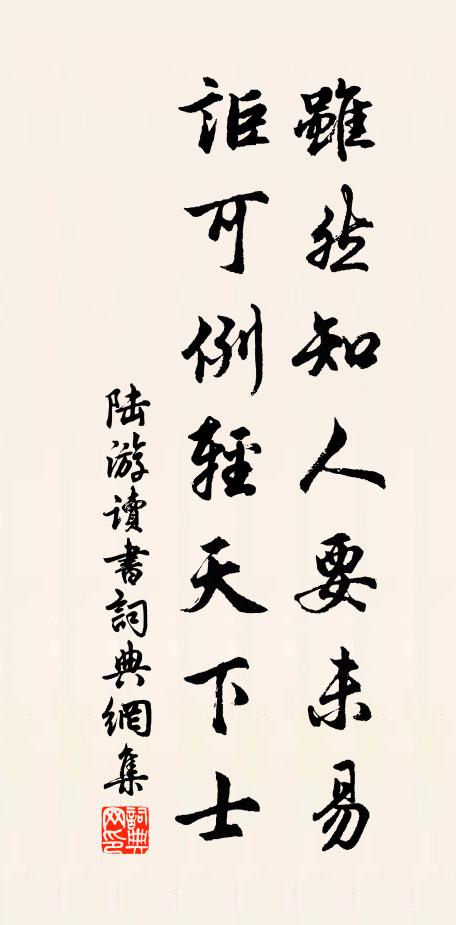 雖然知人要未易
詎可例輕天下士
陆游讀書詞典網集
詞典網印